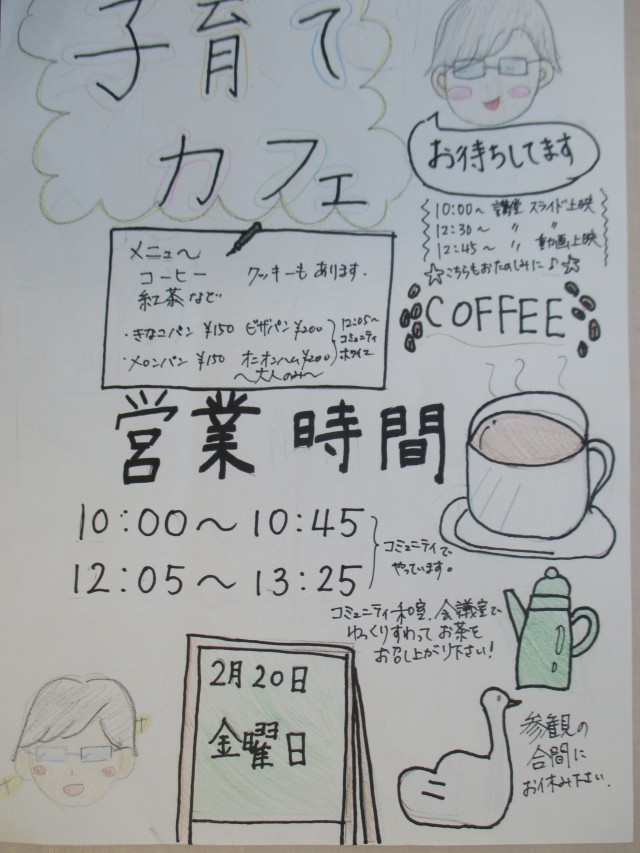 子育て
カフェ
お待ちしてます
10:00〜 講堂 スライド上映
12:30〜 〃 〃
12:45〜 〃 動画上映
☆こちらもおたのしみに♪☆
COFFEE
メニュ〜
コーヒー クッキーも あります.
紅茶 など
・きなコパン ¥150 ピザパン ¥200
・メロンパン ¥150 オニオンハム ¥200
〜大人のみ〜
12:05〜
コミュニティ
ホワイエ
営業時間
10:00〜10:45
12:05〜13:25
コミュニティで
やっています。
コミュニティ和室、会議室で
ゆっくりすわって お茶を
お召し上がり下さい!
2月20日
金曜日
参観の
合間に
お休み下さい.